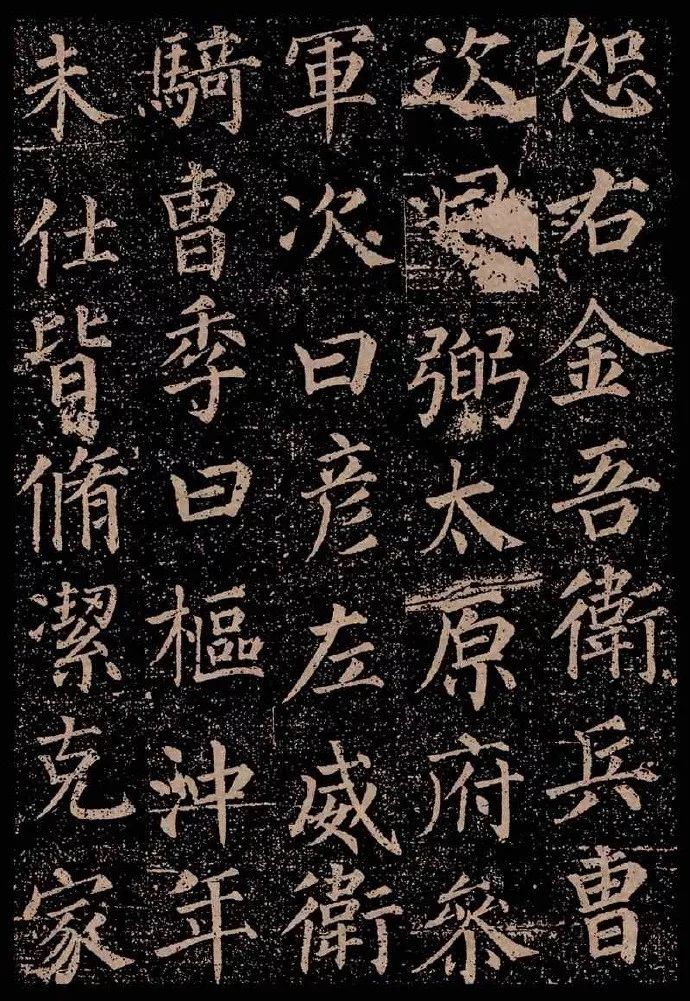 恕右金吾衛兵曹
次曰弼太原府參
軍次曰彦左威衛
騎曹季曰樞沖年
未仕皆脩潔克家